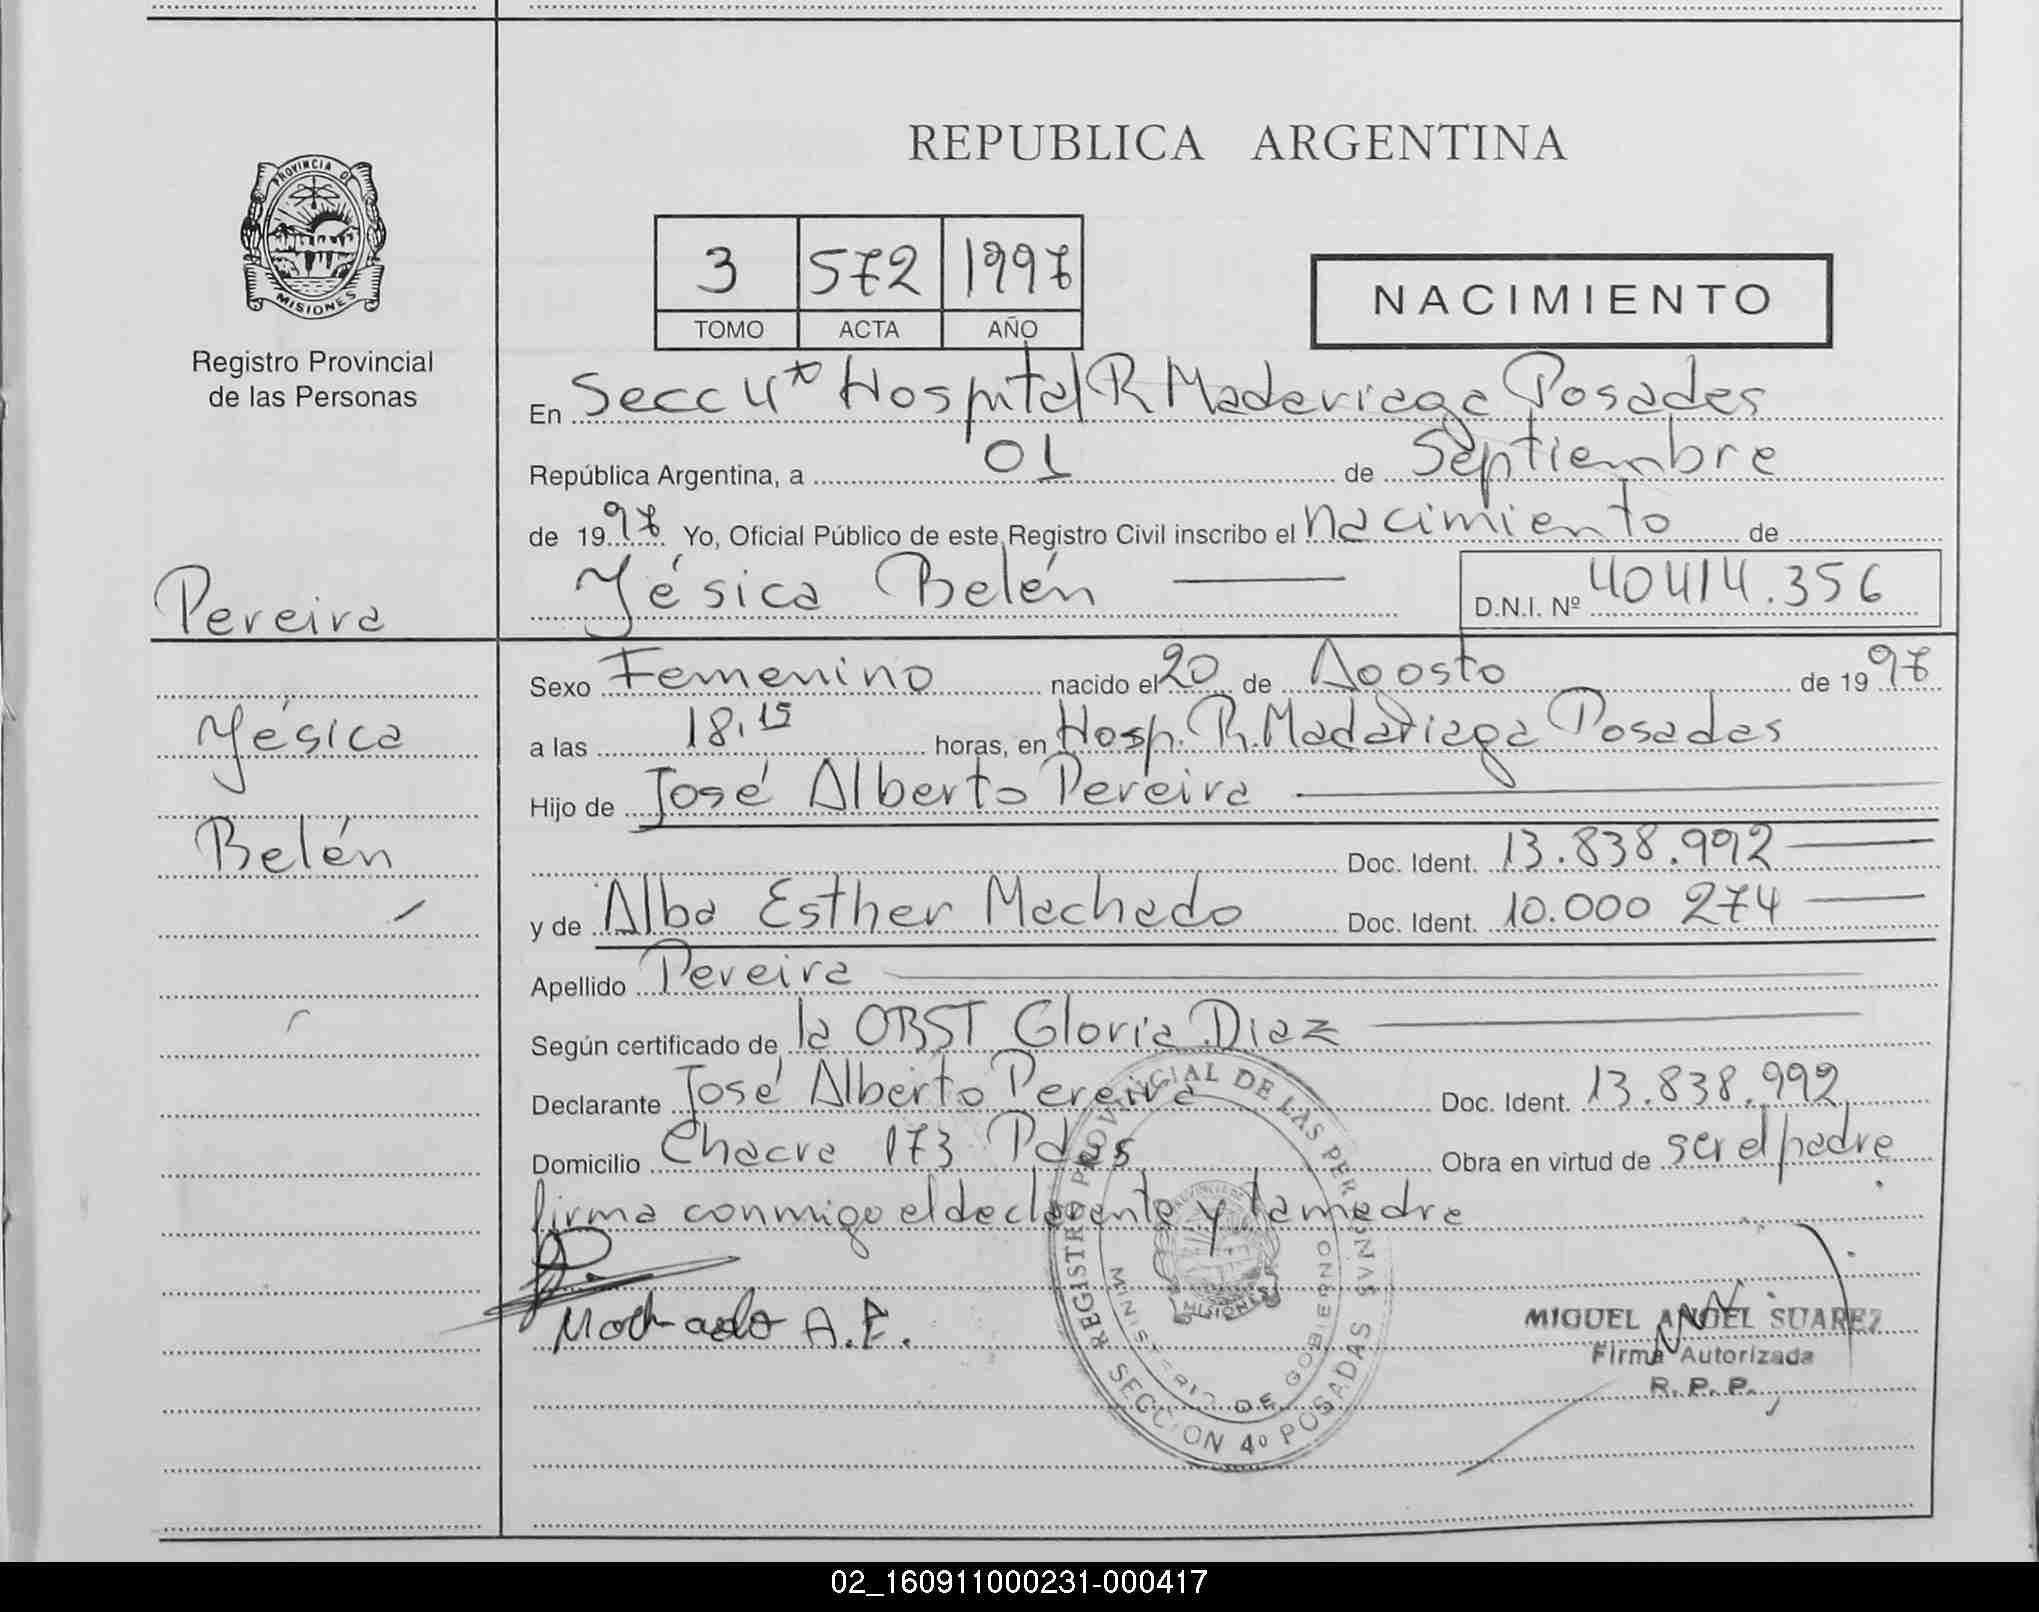 REPUBLICA ARGENTINA
PROVINCIA D
MISIONES
Registro Provincial
de las Personas
3 572 1997
TOMO ACTA AÑO
NACIMIENTO
En Secc 4ª Hospital R Madariaga Posadas
República Argentina, a 01 de Septiembre
de 1997 Yo, Oficial Público de este Registro Civil inscribo el nacimiento de
Yésica Belén D.N.I. Nº 40414.356
Pereira
Yésica
Belén
Sexo Femenino nacido el 20 de Agosto de 1997
a las 18,15 horas, en Hosp. R. Madariaga Posadas
Hijo de José Alberto Pereira
Doc. Ident. 13.838.992
y de Alba Esther Machado Doc. Ident. 10.000 274
Apellido Pereira
Según certificado de la OBST Gloria Diaz
Declarante José Alberto Pereira Doc. Ident. 13.838.992
Domicilio Chacra 173 Pdas Obra en virtud de ser el padre
firma conmigo el declarante y la madre
Machado A.E.
REGISTRO PROVINCIAL DE LAS PERSONAS
MINISTERIO DE GOBIERNO
MISIONES
SECCION 4º POSADAS
MIGUEL ANGEL SUAREZ
Firma Autorizada
R.P.P.
02_160911000231-000417